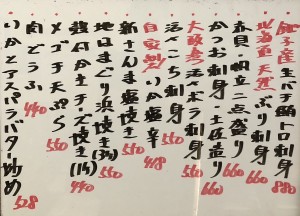 銚子産生バチ鮪トロ刺身 880
北海道天然ぶり刺身 660
赤貝帆立二点盛り 660
かつお刺身 土佐造り 660
大分産活〆ボラ刺身 550
活〆こち刺身 550
自家製いか塩辛 418
新さんま塩焼き 550
地はまぐり浜焼き(3ケ) 550
殻付かきチーズ焼き(1ケ) 440
メゴチ天ぷら 550
肉どうふ 440
いかとアスパラバター炒め 528